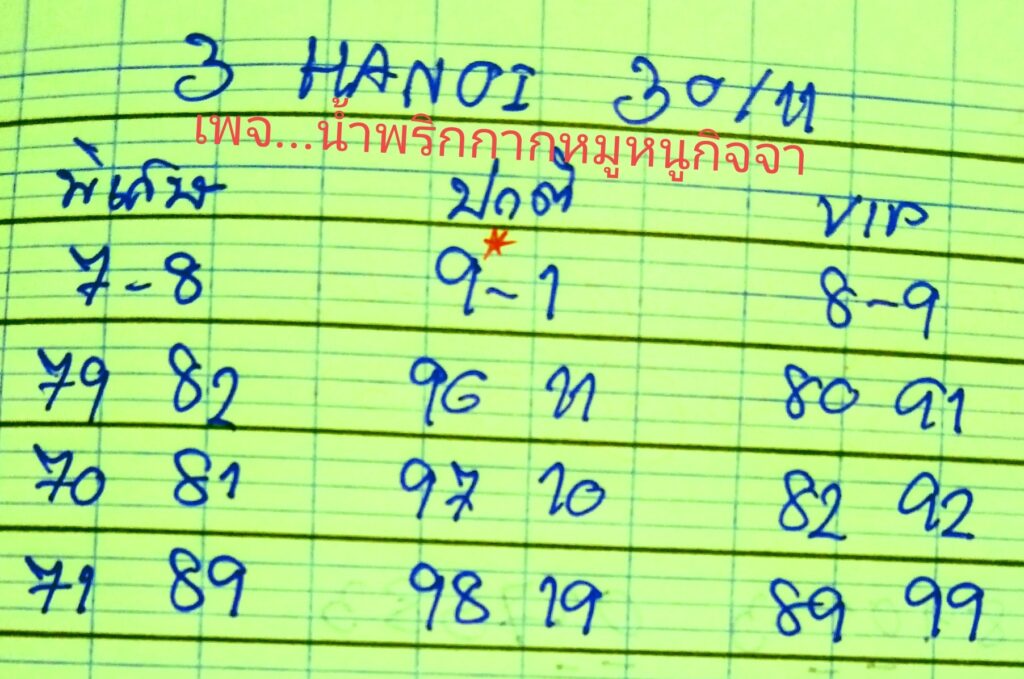 3 HANOI 30/11
เพจ...น้ำพริกกากหมูหนูกิจจา
พิเศษ ปกติ VIP
7-8 9-1 8-9
79 82 96 11 80 91
70 81 97 10 82 92
71 89 98 19 89 99